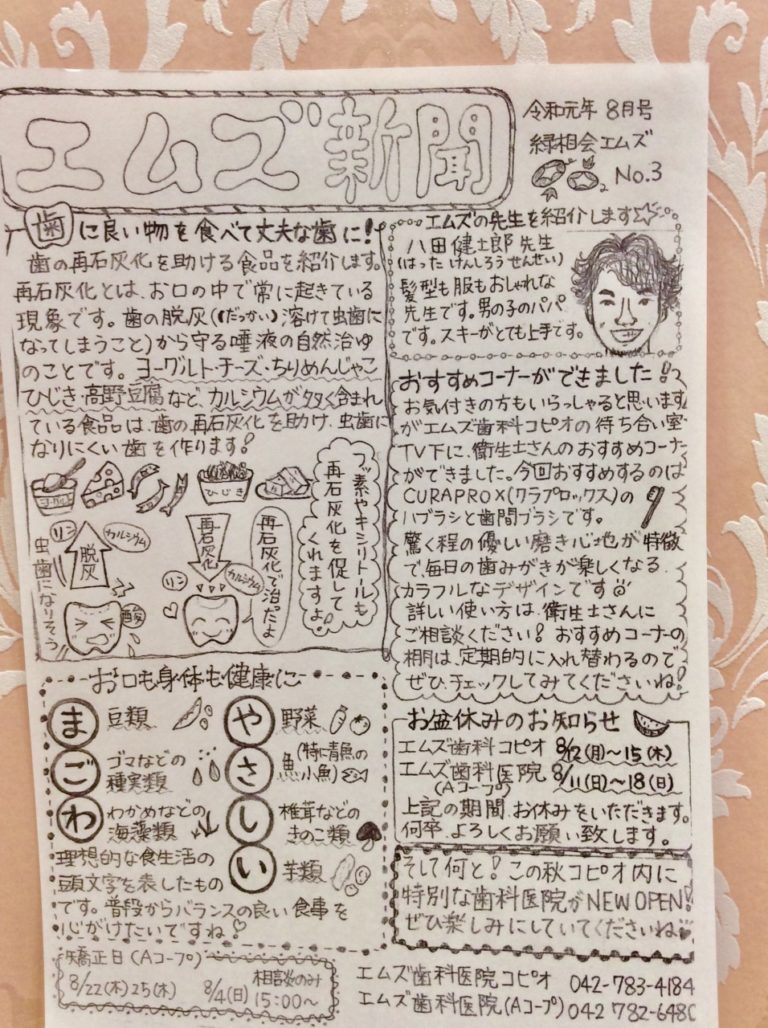 エムズ新聞
令和元年 8月号
緑相会エムズ
No.3
歯に良い物を食べて丈夫な歯に!
歯の再石灰化を助ける食品を紹介します。
再石灰化とは、お口の中で常に起きている
現象です。歯の脱灰(だっかい)溶けて虫歯に
なってしまうこと)から守る唾液の自然治ゆ
のことです。ヨーグルト・チーズ・ちりめんじゃこ
ひじき・高野豆腐など、カルシウムが多く含まれ
ている食品は、歯の再石灰化を助け、虫歯に
なりにくい歯を作ります!
ヨーグルト
ひじき
リン
カルシウム
脱灰
虫歯になりそう
酸
再石灰化
リン
カルシウム
再石灰化で治ったよ
フッ素やキシリトールも
再石灰化を促して
くれますよ!
お口も身体も健康に
ま 豆類
ご ゴマなどの
種実類
わ わかめなどの
海藻類
や 野菜
さ 魚(特に青魚の
小魚)
し 椎茸などの
きのこ類
い 芋類
理想的な食生活の
頭文字を表したもの
です。普段からバランスの良い食事を
心がけたいですね!
矯正日(Aコープ)
8/22(木)25(木)
相談のみ
8/4(日)15:00〜
エムズの先生を紹介します
八田健士郎先生
(はった けんしろう せんせい)
髪型も服もおしゃれな
先生です。男の子のパパ
です。スキーがとても上手です。
おすすめコーナーができました!
お気付きの方もいらっしゃると思います
がエムズ歯科コピオの待ち合い室
TV下に、衛生士さんのおすすめコーナー
ができました。今回おすすめするのは
CURAPROX(クラプロックス)の
ハブラシと歯間ブラシです。
驚く程の優しい磨き心地が特徴
で、毎日の歯みがきが楽しくなる
カラフルなデザインです
詳しい使い方は、衛生士さんに
ご相談ください! おすすめコーナーの
棚は、定期的に入れ替わるので
ぜひチェックしてみてくださいね!
お盆休みのお知らせ
エムズ歯科コピオ 8/12(月)〜15(木)
エムズ歯科医院 8/11(日)〜18(日)
(Aコープ)
上記の期間、お休みをいただきます。
何卒、よろしくお願い致します。
そして何と! この秋コピオ内に
特別な歯科医院がNEW OPEN!
ぜひ楽しみにしていてくださいね
エムズ歯科医院コピオ 042-783-4184
エムズ歯科医院(Aコープ) 042 782-6480